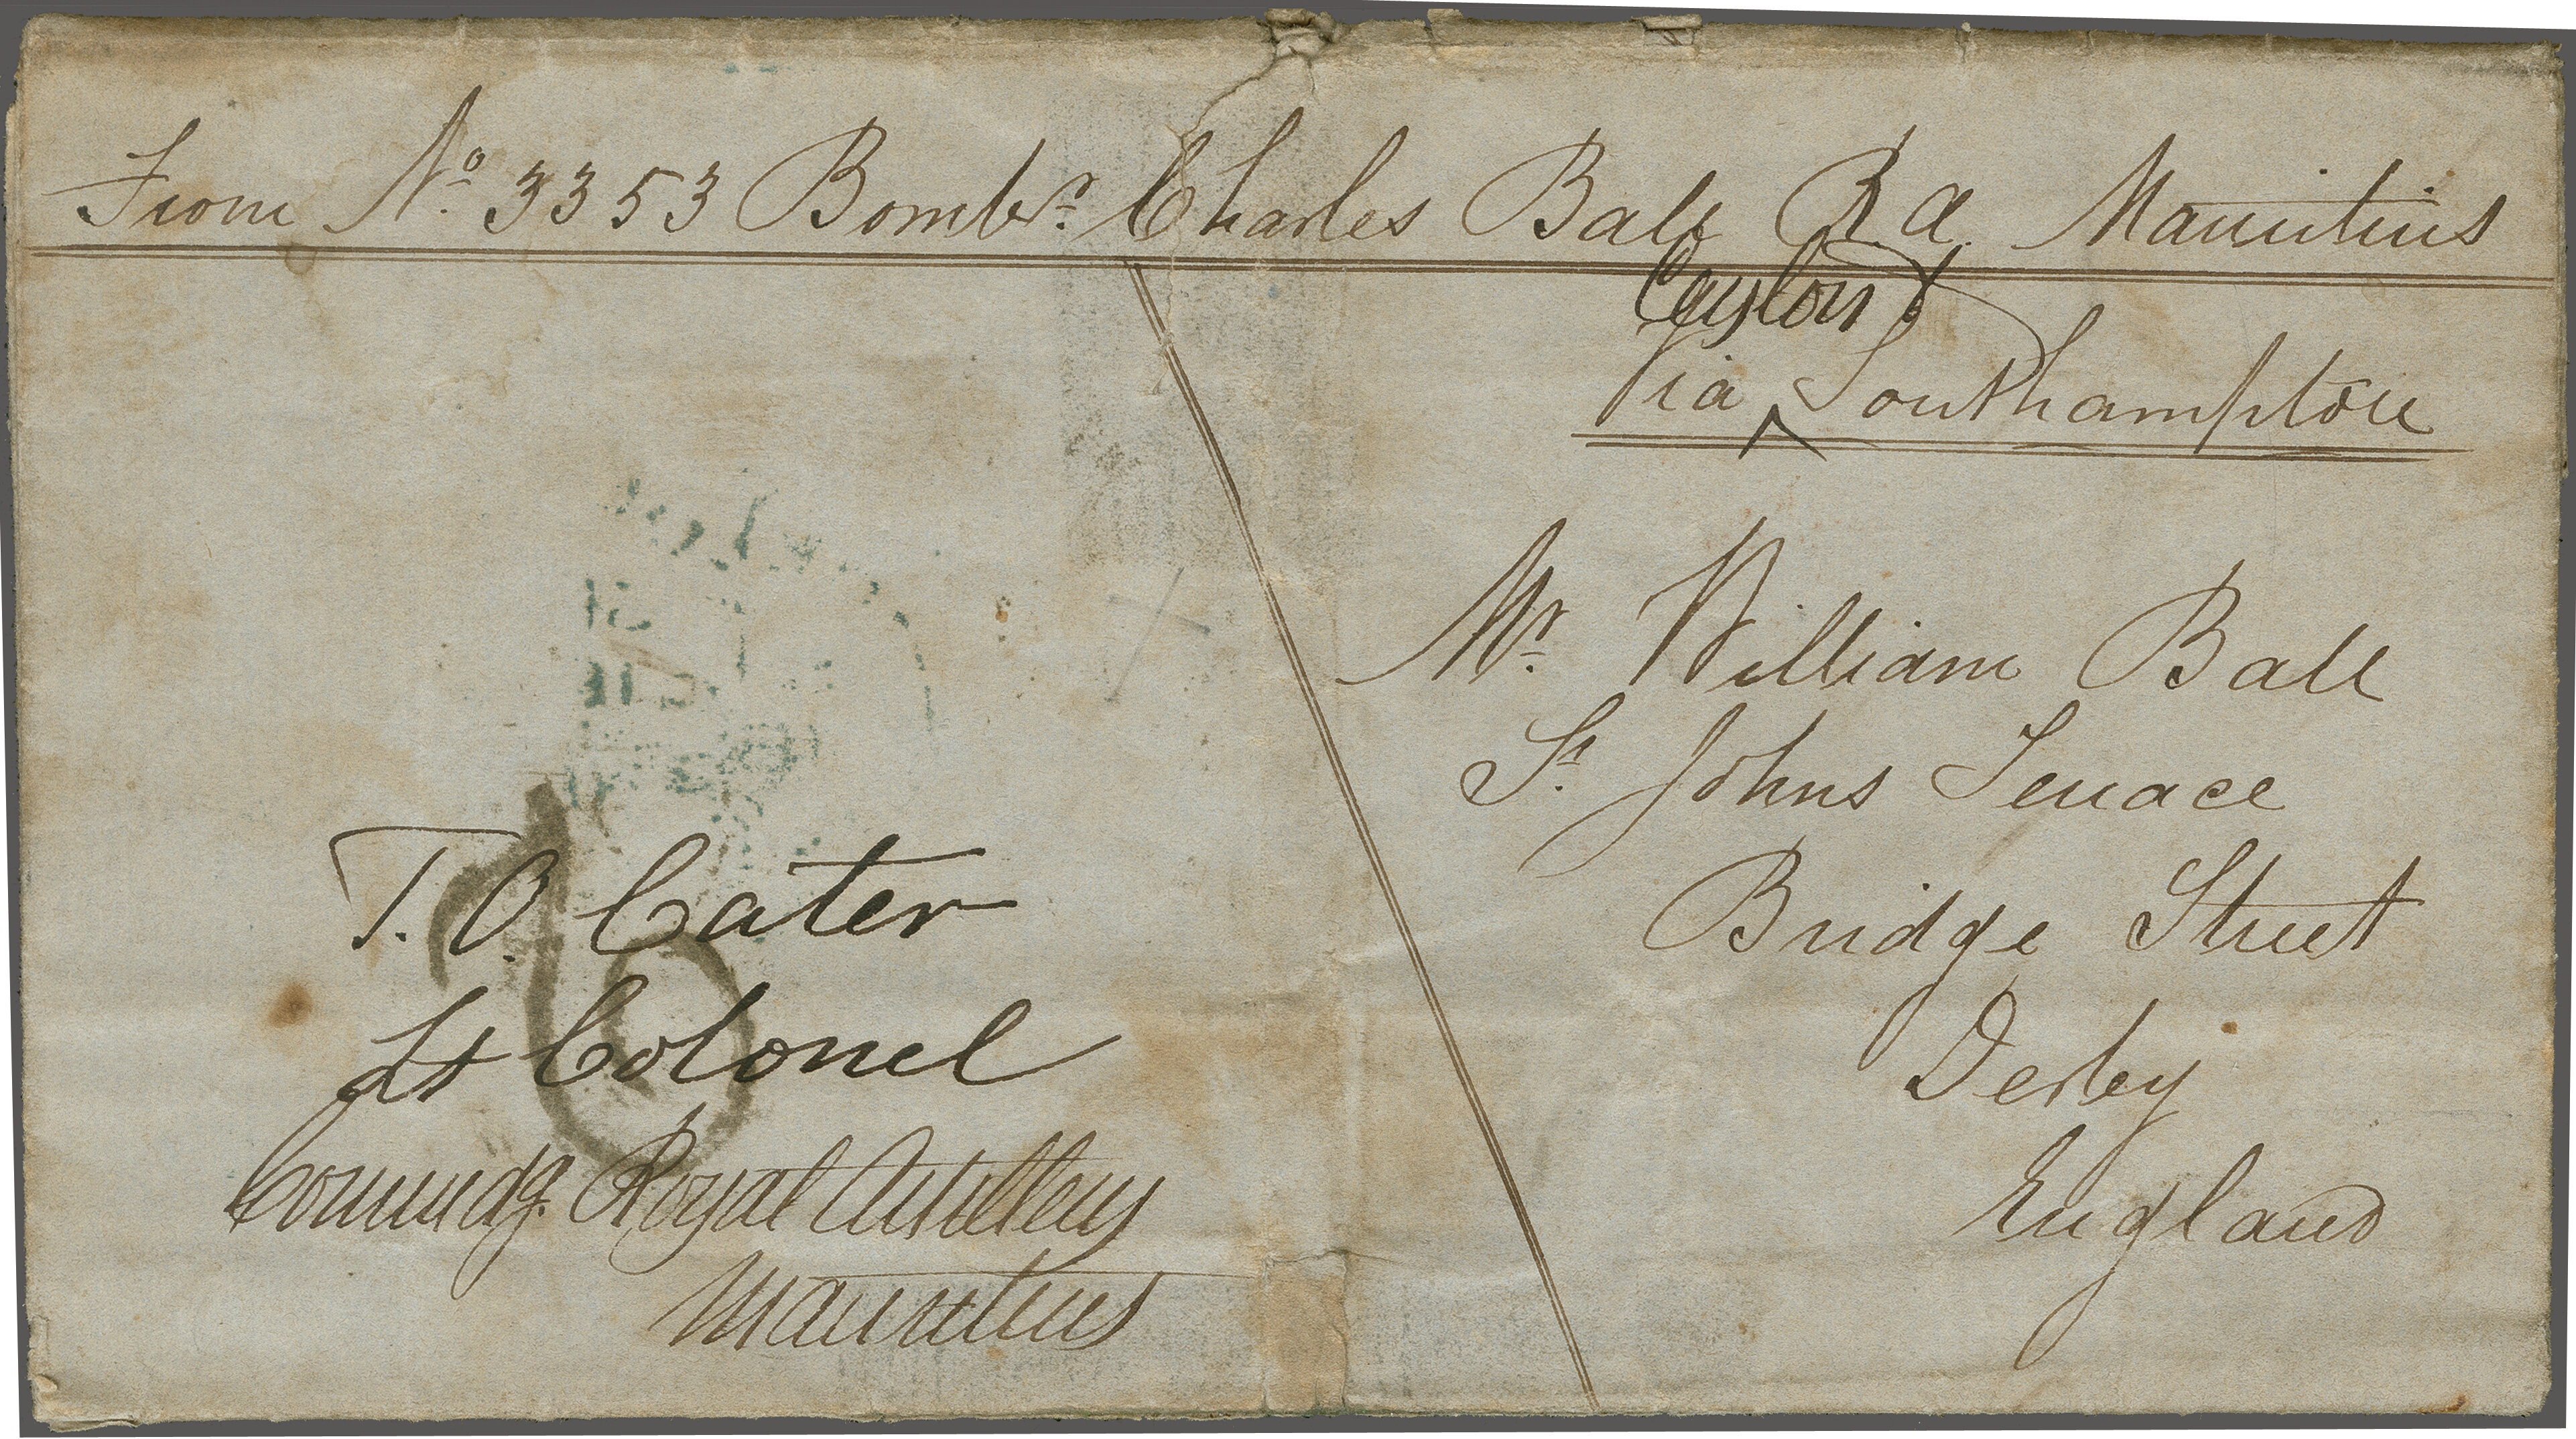 From No. 3353 Bombr. Charles Ball R.A. Mauritius
Ceylon &
Via Southampton
Mr. William Ball
St. Johns Terrace
Bridge Street
Derby
England
T. O. Cater
Lt Colonel
Commdg. Royal Artillery
Mauritius